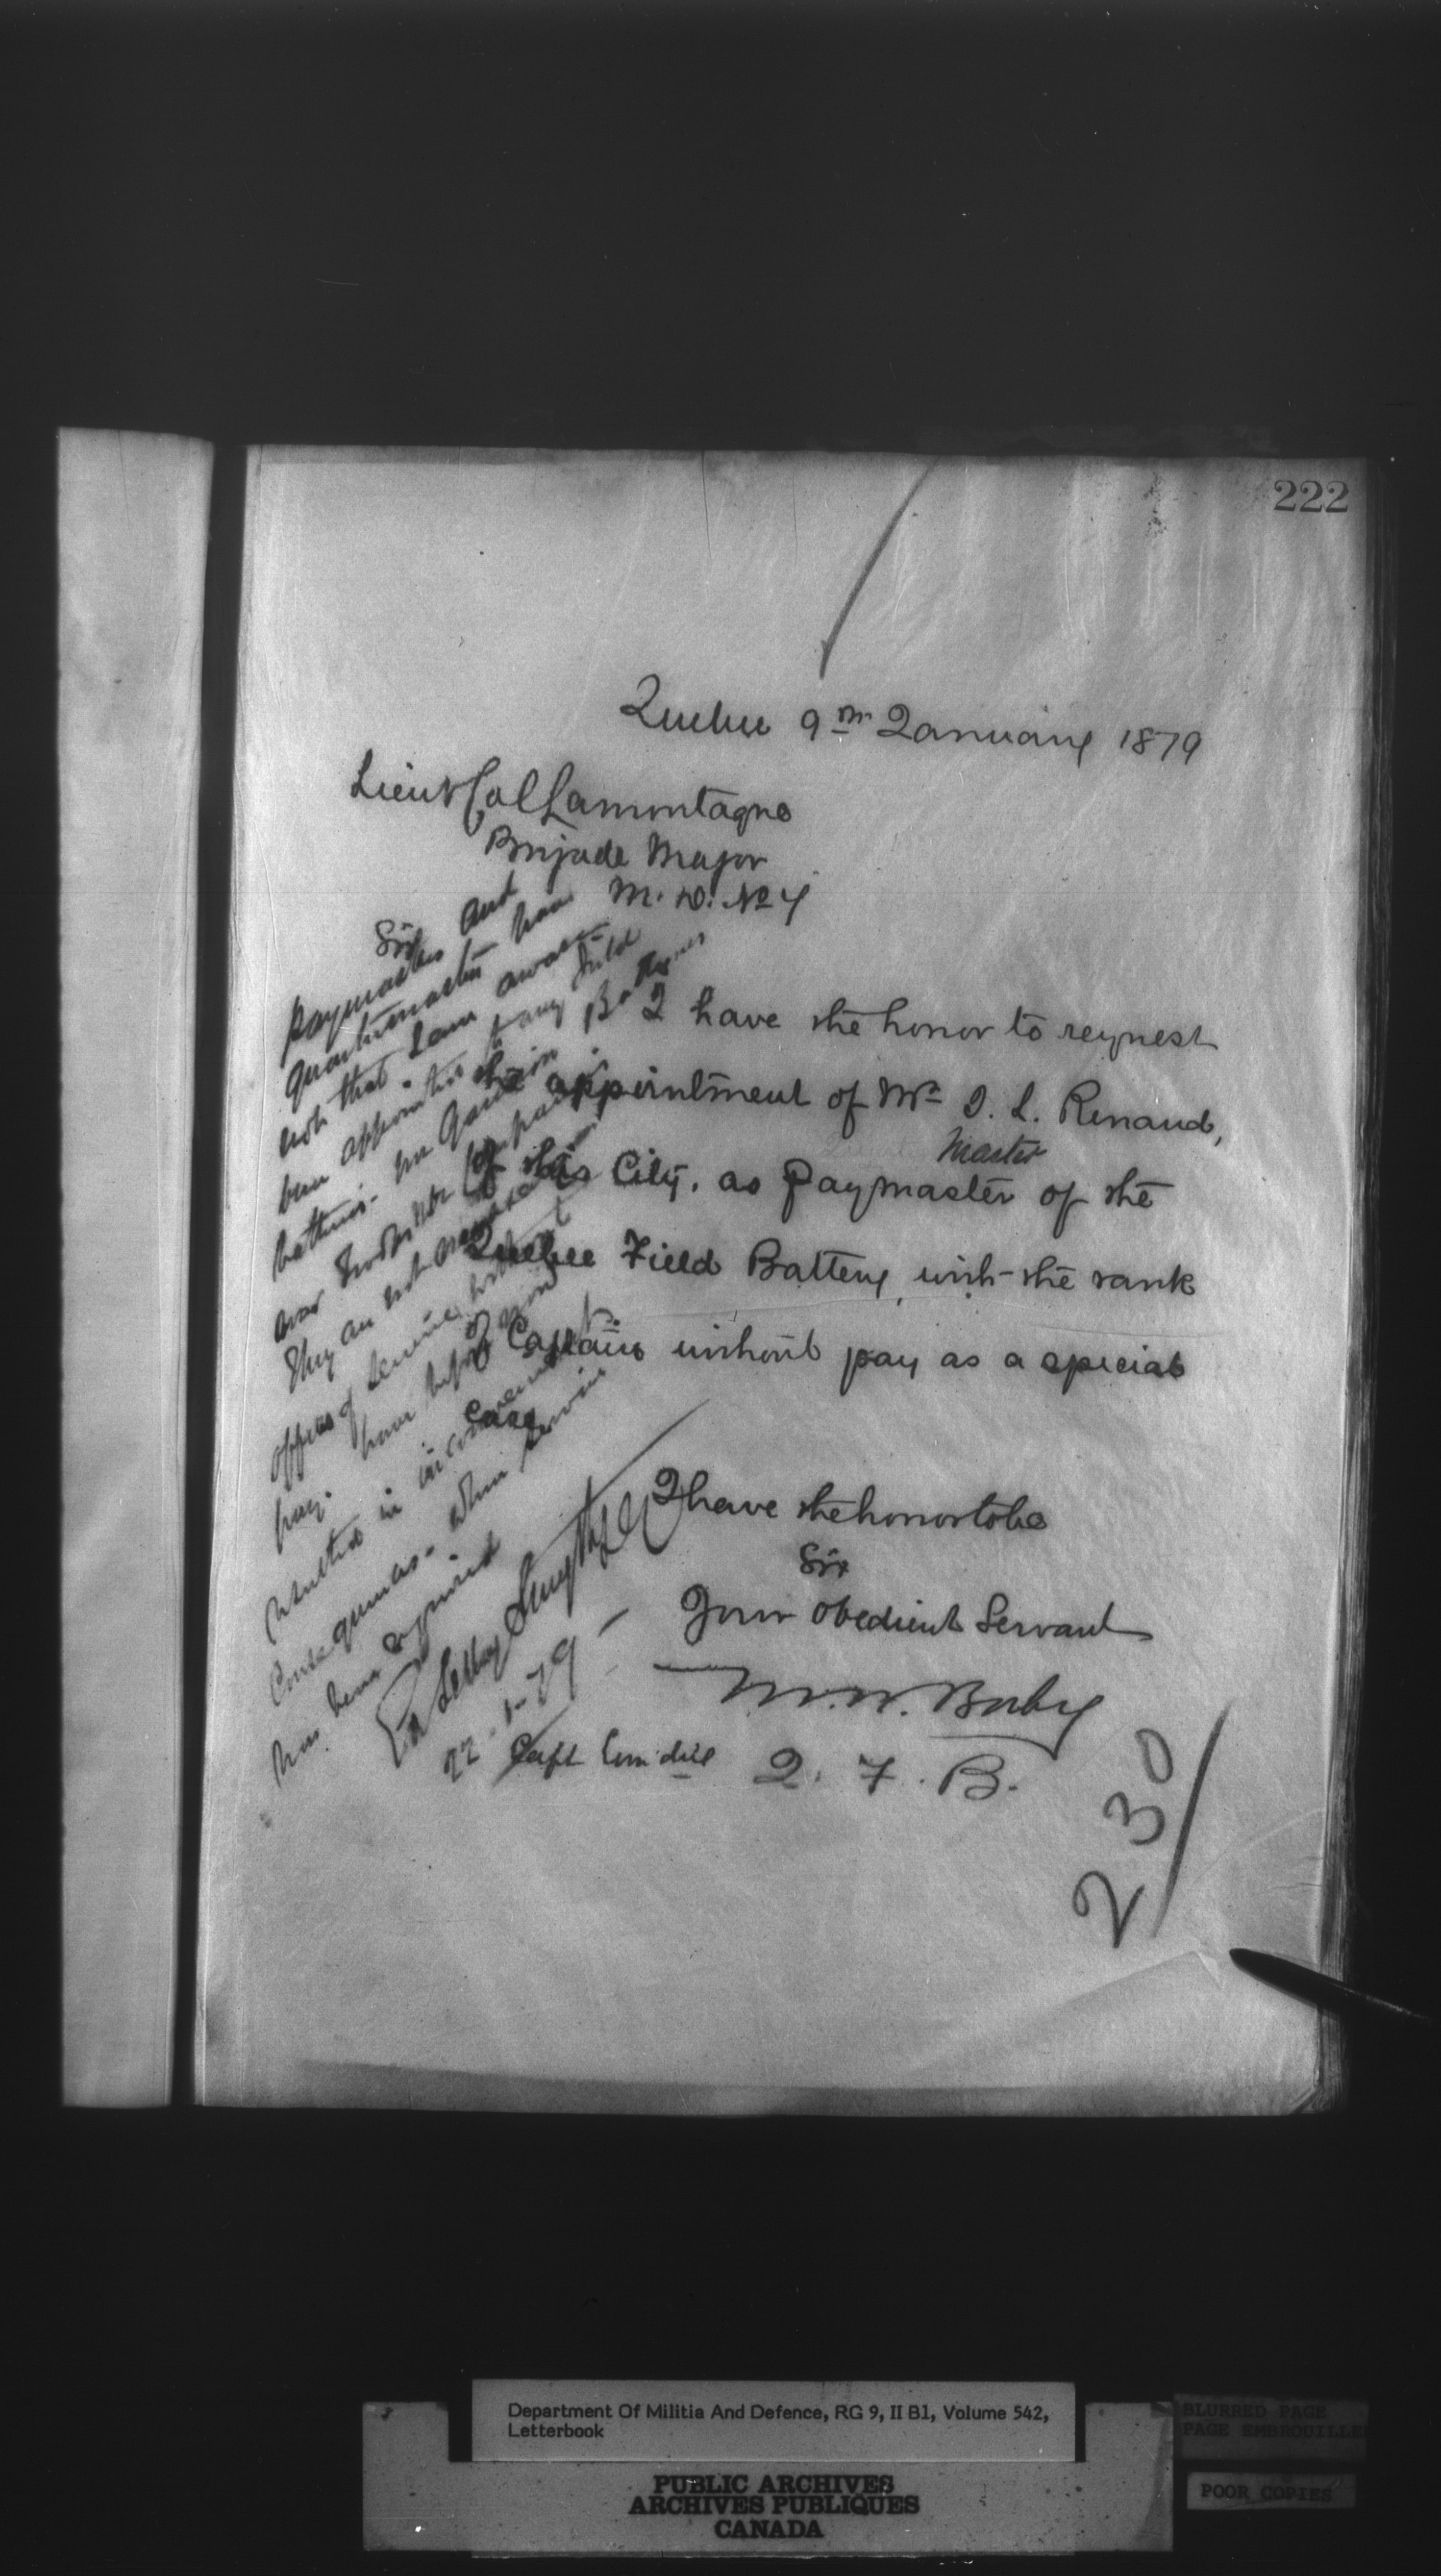 222
Quebec 9th January 1879
Lieut Col Lamontagne
Brigade Major
M. D. No 7
Sir
I have the honor to request
the appointment of Mr J. L. Renaud,
Master
of this City, as Paymaster of the
Quebec Field Battery, with the rank
of Captain without pay as a special
case
I have the honor to be
Sir
Your Obedient Servant
M. W. Baby
Capt Com'd'g Q. F. B.
230
Paymasters and
Quartermasters have
not that I am aware
been appointed to any Field
batteries. Garrison Batteries
nor
They are not
officers of service, without
pay. have before
resulted in inconvenient
Consequences. when
has been required
Ed Selby Smyth
22-1-79
Department Of Militia And Defence, RG 9, II B1, Volume 542,
Letterbook
BLURRED PAGE
PAGE EMBROUILLEE
POOR COPIES
PUBLIC ARCHIVES
ARCHIVES PUBLIQUES
CANADA